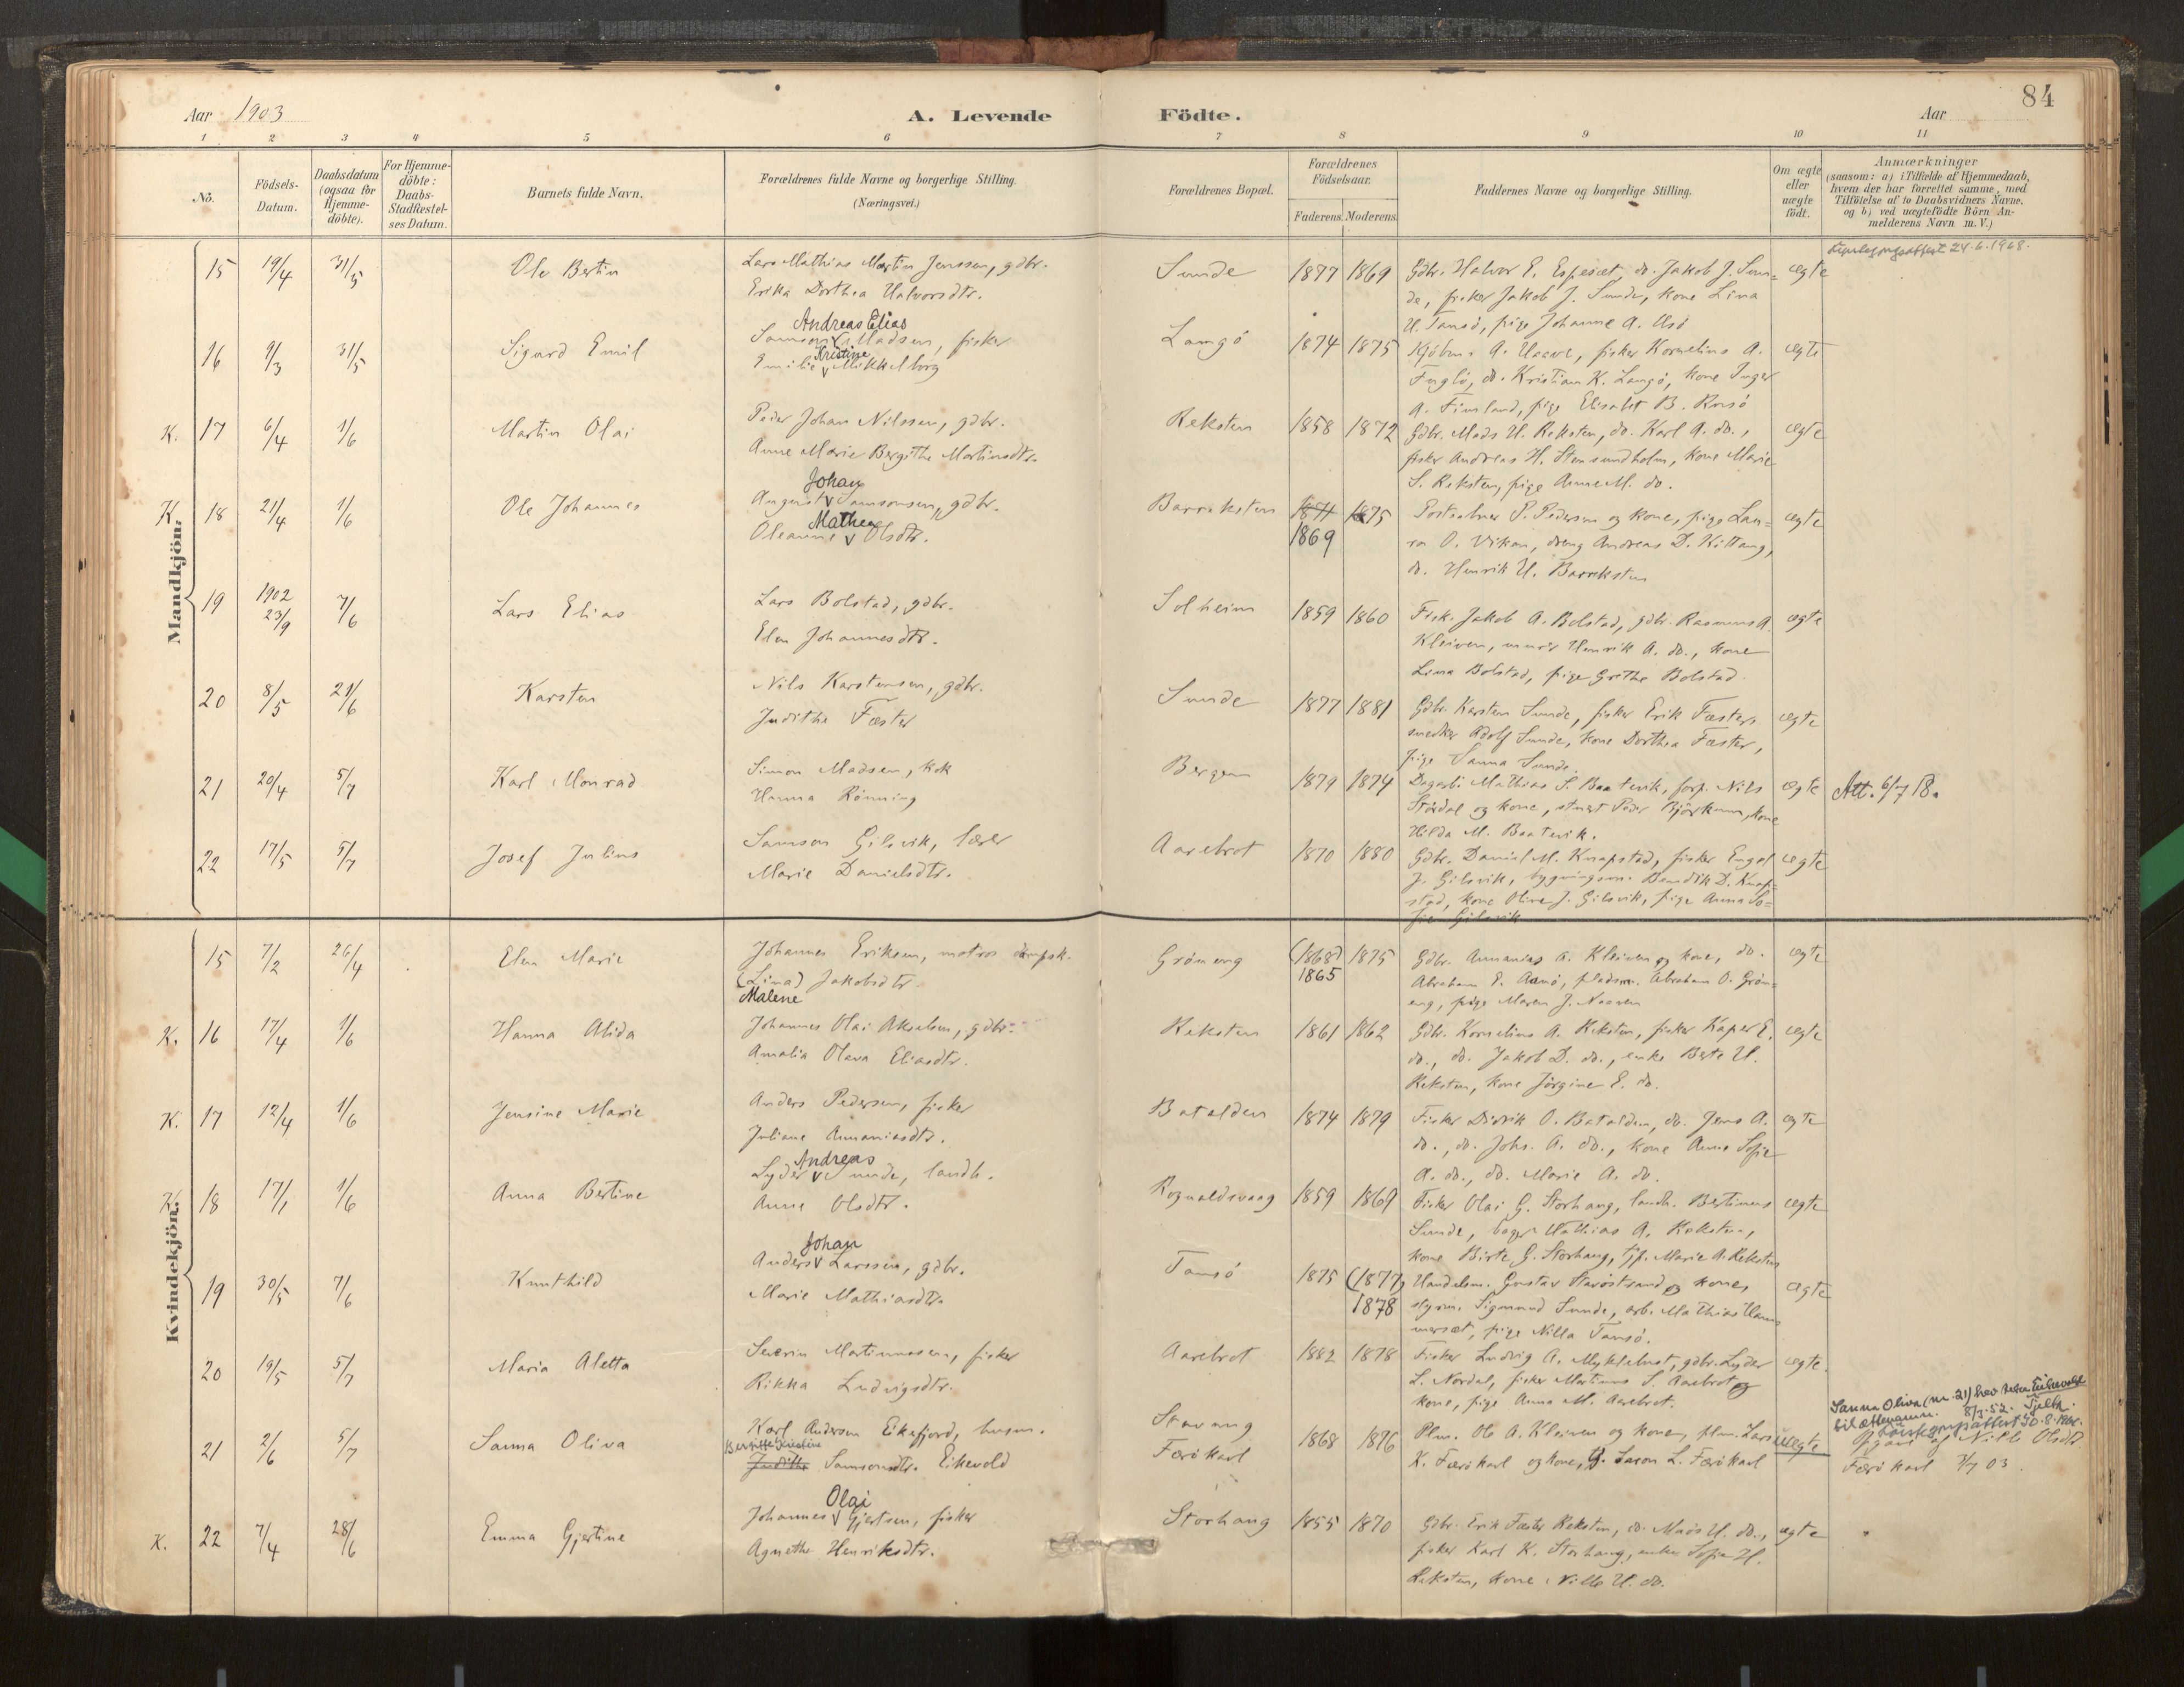 84
Aar 1903
A. Levende
Födte.
Aar
1 2 3 4 5 6 7 8 9 10 11
No.
Födsels-
Datum.
Daabsdatum
(ogsaa for
Hjemme-
döbte).
For Hjemme-
döbte:
Daabs-
Stadfæstel-
ses Datum.
Barnets fulde Navn.
Forældrenes fulde Navne og borgerlige Stilling.
(Næringsvei.)
Forældrenes Bopæl.
Forældrenes
Födselsaar.
Faderens. Moderens.
Faddernes Navne og borgerlige Stilling.
Om ægte
eller
uægte
födt.
Anmærkninger
(saasom: a) i Tilfælde af Hjemmedaab,
hvem der har forrettet samme, med
Tilföielse af to Daabsvidners Navne,
og b) ved uægtefödte Börn An-
melderens Navn m. V.)
Mandkjön.
24.6.1968.
15 19/4 31/5 Ole Bertin
Lars Mathias Martin Jenssen, gdbr.
Erika Dorthea Halvorsdtr.
Sunde 1877 1869
Gdbr. Halvor E. Espeset, do. Jakob J. Sun-
de, fisker Jakob J. Sunde, kone Lina
H. Tansö, pige Johanne A. Usö
ægte
16 9/3 31/5 Sigurd Emil
Andreas Elias
Samson Madsen, fisker
Kristine
Emilie Mikkelborg
Langö 1874 1875
Kjöbm. A. Haave, fisker Kornelius A.
Fuglö, do. Kristian K. Langö, kone Inger
A. Fimland, pige Elisabet B. Rosö
ægte
K. 17 6/4 1/6 Martin Olai
Peder Johan Nilssen, gdbr.
Anne Marie Bergithe Martinsdtr.
Reksten 1858 1872
Gdbr. Mads H. Reksten, do. Karl A. do.,
fisker Andreas H. Stensundholm, kone Marie
S. Reksten, pige Anne M. do.
ægte
K. 18 21/4 1/6 Ole Johannes
Johan
August Samsonsen, gdbr.
Mathea
Oleanne Olsdtr.
Barreksten 1871 1875
1869
Postaabner P. Pedersen og kone, pige Lau-
ra O. Vikan, dreng Andreas D. Kittang,
do. Henrik H. Barreksten
ægte
19 1902
23/9 7/6 Lars Elias
Lars Bolstad, gdbr.
Elen Johannesdtr.
Solheim 1859 1860
Fisk. Jakob A. Bolstad, gdbr. Rasmus A.
Kleiven, murer Henrik A. do., kone
Lina Bolstad, pige Grethe Bolstad.
ægte
20 8/5 21/6 Karsten
Nils Karstensen, gdbr.
Judithe Fæster
Sunde 1877 1881
Gdbr. Karsten Sunde, fisker Erik Fæster,
snedker Adolf Sunde, kone Dorthea Fæster,
pige Sanna Sunde.
ægte
21 20/4 5/7 Karl Monrad
Simon Madsen, kok
Hanna Rönning
Bergen 1879 1874
Dagarb. Mathias S. Baatevik, forp. Nils
Stördal og kone, stuert Peder Björkum, kone
Hilda M. Baatevik.
ægte
Att. 6/7 18.
22 17/5 5/7 Josef Julius
Samson Gilsvik, lærer
Marie Danielsdtr.
Aarebrot 1870 1880
Gdbr. Daniel M. Knapstad, fisker Engel
J. Gilsvik, bygningsm. Bendik D. Knap-
stad, kone Oline J. Gilsvik, pige Anna So-
fie Gilsvik
ægte
Kvindekjön.
15 7/2 26/4 Elen Marie
Johannes Eriksen, matros dampsk.
(Lina) Jakobsdtr
Malene
Gröneng (1868) 1875
1865
Gdbr. Annanias A. Kleiven og kone, do.
Abraham E. Aanö, pladsm. Abraham O. Grön-
eng, pige Maren J. Naaven
ægte
K. 16 17/4 1/6 Hanna Alida
Johannes Olai Akselsen, gdbr.
Amalia Oleva Eliasdtr.
Reksten 1861 1862
Gdbr. Kornelius A. Reksten, fisker Kasper E.
do., do. Jakob D. do., enke Berte H.
Reksten, kone Jörgine E. do.
ægte
K. 17 12/4 1/6 Jensine Marie
Anders Pedersen, fisker
Juliane Annaniasdtr.
Batalden 1874 1879
Fisker Didrik O. Batalden, do. Jens A.
do., do. Johs. A. do., kone Anne Sofie
A. do., do. Marie A. do.
ægte
K. 18 17/1 1/6 Anna Bertine
Andreas
Lyder Sunde, landh.
Anne Olsdtr.
Rognaldsvaag 1859 1869
Fisker Olai G. Storhaug, landh. Bertinus
Sunde, bager Mathias A. Reksten,
kone Birte G. Storhaug, tjp. Marie A. Reksten
ægte
19 30/5 7/6 Kunthild
Johan
Anders Larssen, gdbr.
Marie Mathiasdtr.
Tansö 1875 (1877)
1878
Handelsm. Gustav Staröstrand og kone,
styrm. Sigmund Sunde, arb. Mathias Ham-
merset, pige Nilla Tansö.
ægte
20 19/5 5/7 Maria Aletta
Severin Martinussen, fisker
Rikka Ludvigsdtr.
Aarebrot 1882 1878
Fisker Ludvig A. Myklebust, gdbr. Lyder
L. Nordal, fisker Martinus S. Aarebrot og
kone, pige Anna M. Aarebrot.
ægte.
21 2/6 5/7 Sanna Oliva
Karl Andersen Eikefjord, husm.
Bergitte Kristine
Judithe Samsonsdtr. Eikevold
Stavang
Færökarl
1868 1876
Plm. Ole A. Kleiven og kone, plm. Lars
K. Færökarl og kone, G. Lason L. Færökarl
uægte
Sanna Oliva (nr. 21) hev teke Eikevold
til ættenamn. 8/3.52.
Opgave af Nille Olsdtr
Færökarl 7/7 03.
K. 22 7/4 28/6 Emma Gjertine
Olai
Johannes Gjertsen, fisker
Agnethe Henriksdtr.
Storhaug 1855 1870
Gdbr. Erik Fæster Reksten, do. Mads H. do.,
fisker Karl K. Storhaug, enke Sofie H.
Reksten, kone Nille H. do.
ægte